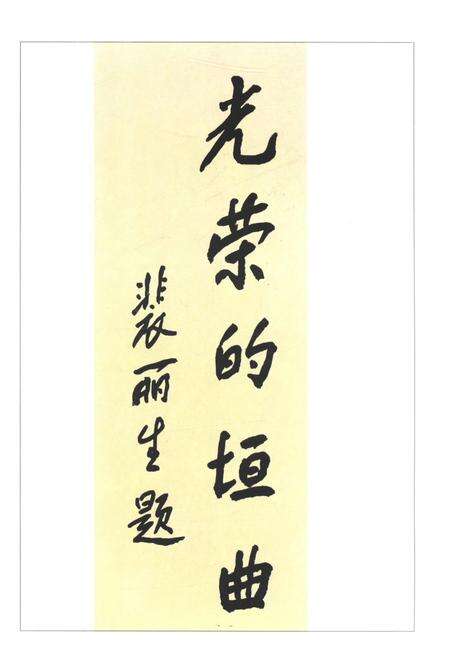 光荣的垣曲
裴丽生题